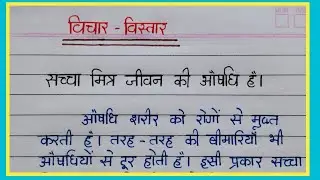 विचार-विस्तार
सच्चा मित्र जीवन की औषधि है।
औषधि शरीर को रोगों से मुक्त
करती है। तरह-तरह की बीमारियाँ भी
औषधियों से दूर होती है। इसी प्रकार सच्चा